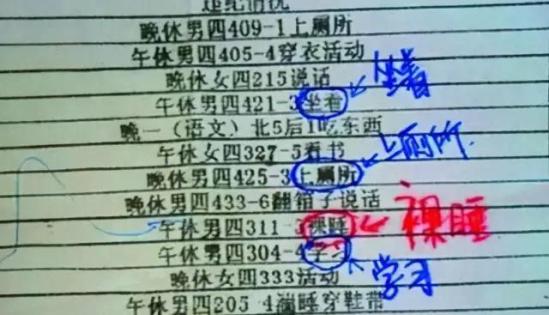 违纪情况
晚休男四409-1上厕所
午休男四405-4穿衣活动
晚休女四215说话
午休男四421-3坐着
坐着
晚一（语文）北5后1吃东西
午休女四327-5看书
上厕所
晚休男四425-3上厕所
晚休男四433-6翻箱子说话
午休男四311-3裸睡
裸睡
午休男四304-4学习
学习
晚休女四333活动
午休男四205 4 睡穿鞋带